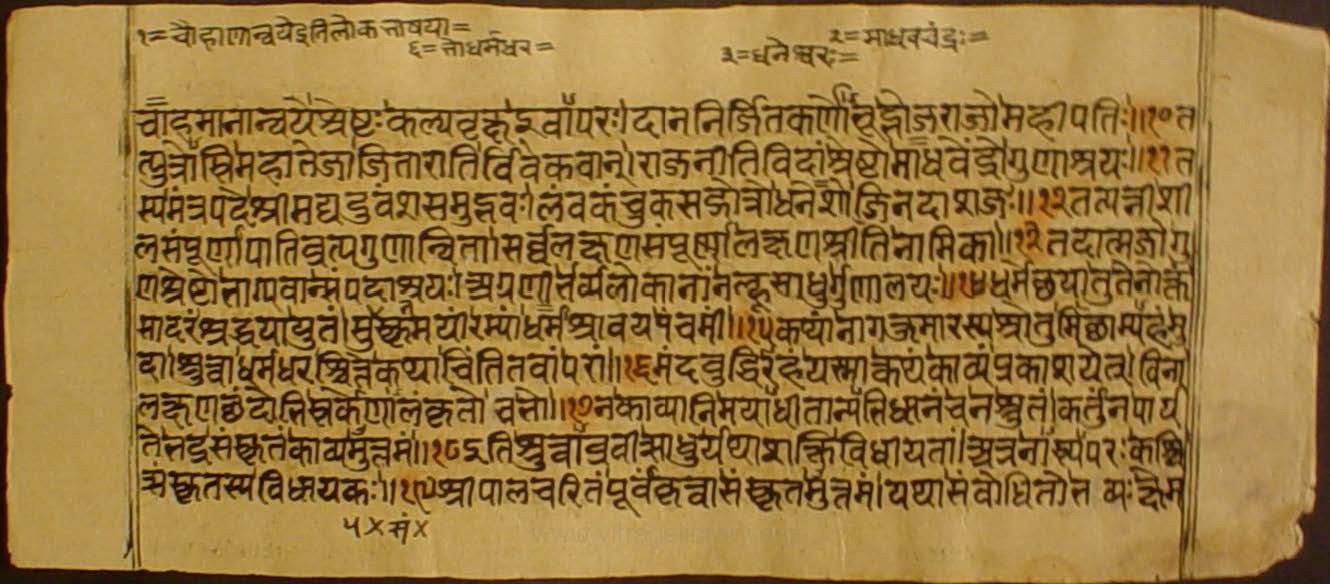 १=चौहाणान्वयेइतिलोकभाषया=
६=भोधर्मधर=
३=धनेश्वरः=
२=माधवचंद्रः=
चाहमानान्वये श्रेष्टः कल्पवृक्ष इवापरः। दाननिर्जितकर्णोभूद्भोजराजो महीपतिः॥१०त
त्पुत्रोस्ति महातेजा जितारातिर्विवेकवान्। राजनीतिविदां श्रेष्टो माधवेंद्रो गुणाश्रयः॥११त
स्य मंत्रपदे श्रीमद्यदुवंशसमुद्भवः। लंवकंचुकसद्गोत्रो धनेशो जिनदाशजः॥१२तत्पत्नी शी
लसंपूर्णा पातिव्रत्यगुणान्विता। सर्व्वलक्षणसंपूर्णा लक्षणश्रीति नामिका॥१३तदात्मजो गु
णश्रेष्टो भाग्यवान्संपदाश्रयः। अग्रणीर्भव्यलोकानां नल्हूसाधुर्गुणालयः॥१४धर्मेछया तु तेनोक्त
मादरश्रद्धयायुतं। मुक्तीमया रम्यां धर्मश्रावय पंचमी॥१५कथां नागकुमारस्य श्रोतुमिछाम्यहं मु
दा। श्रुत्वा धर्मधरश्चित्ते कथाचिंतितवां परां॥१६मंदवुद्धिरहं यस्मात्कथं काव्यं प्रकाशयेत्। विना
लक्षणछंदोभिस्तर्केणालंकृतो वत्तो॥१७न काव्यानि मयाधीतान्यभिधानं च न श्रुतं। कर्तुं न पार्य
ते तद्वसंस्कृतं काव्यमुत्तमं॥१८इति श्रुत्वाव्रवीत्साधुर्यथाशक्तिविधीयतां। अत्र नास्त्यपरः कश्चि
त्संस्कृतस्य विधायकः॥१९श्रीपालचरितं पूर्वं कृत्वा संस्कृतमुत्तमं। यथा संवोधितो भव्यः क्षेम
५×सं×